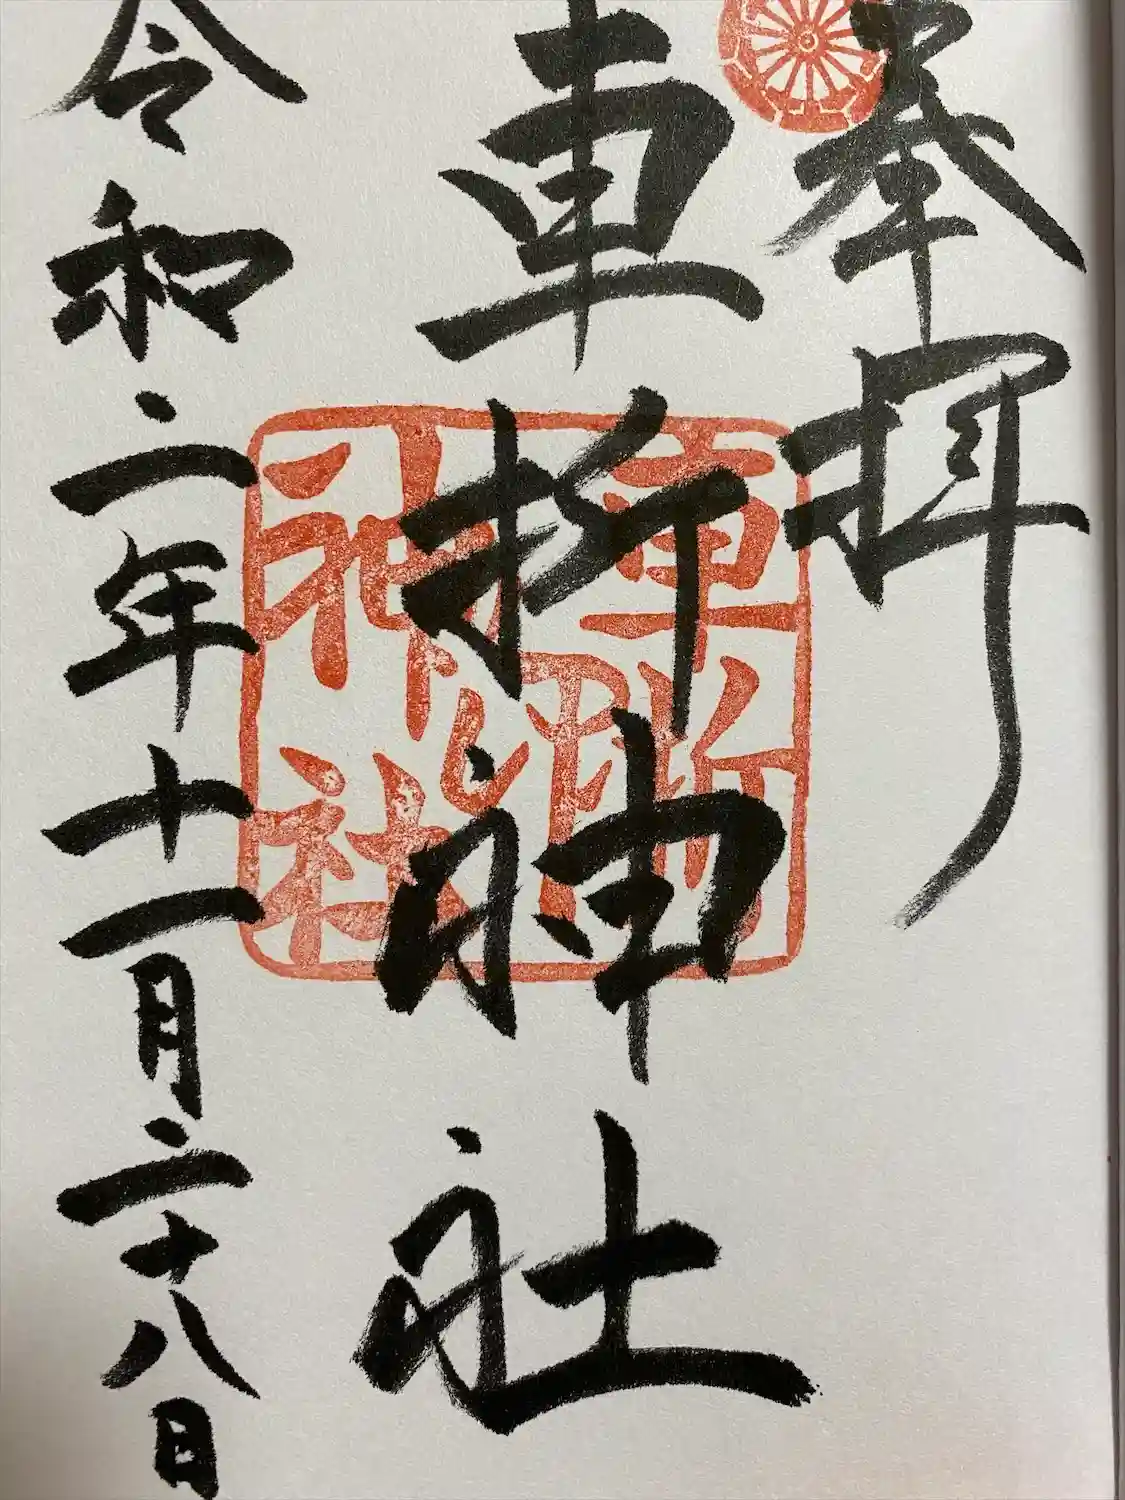 奉拝
車折神社
車折神社印
令和二年十一月二十八日